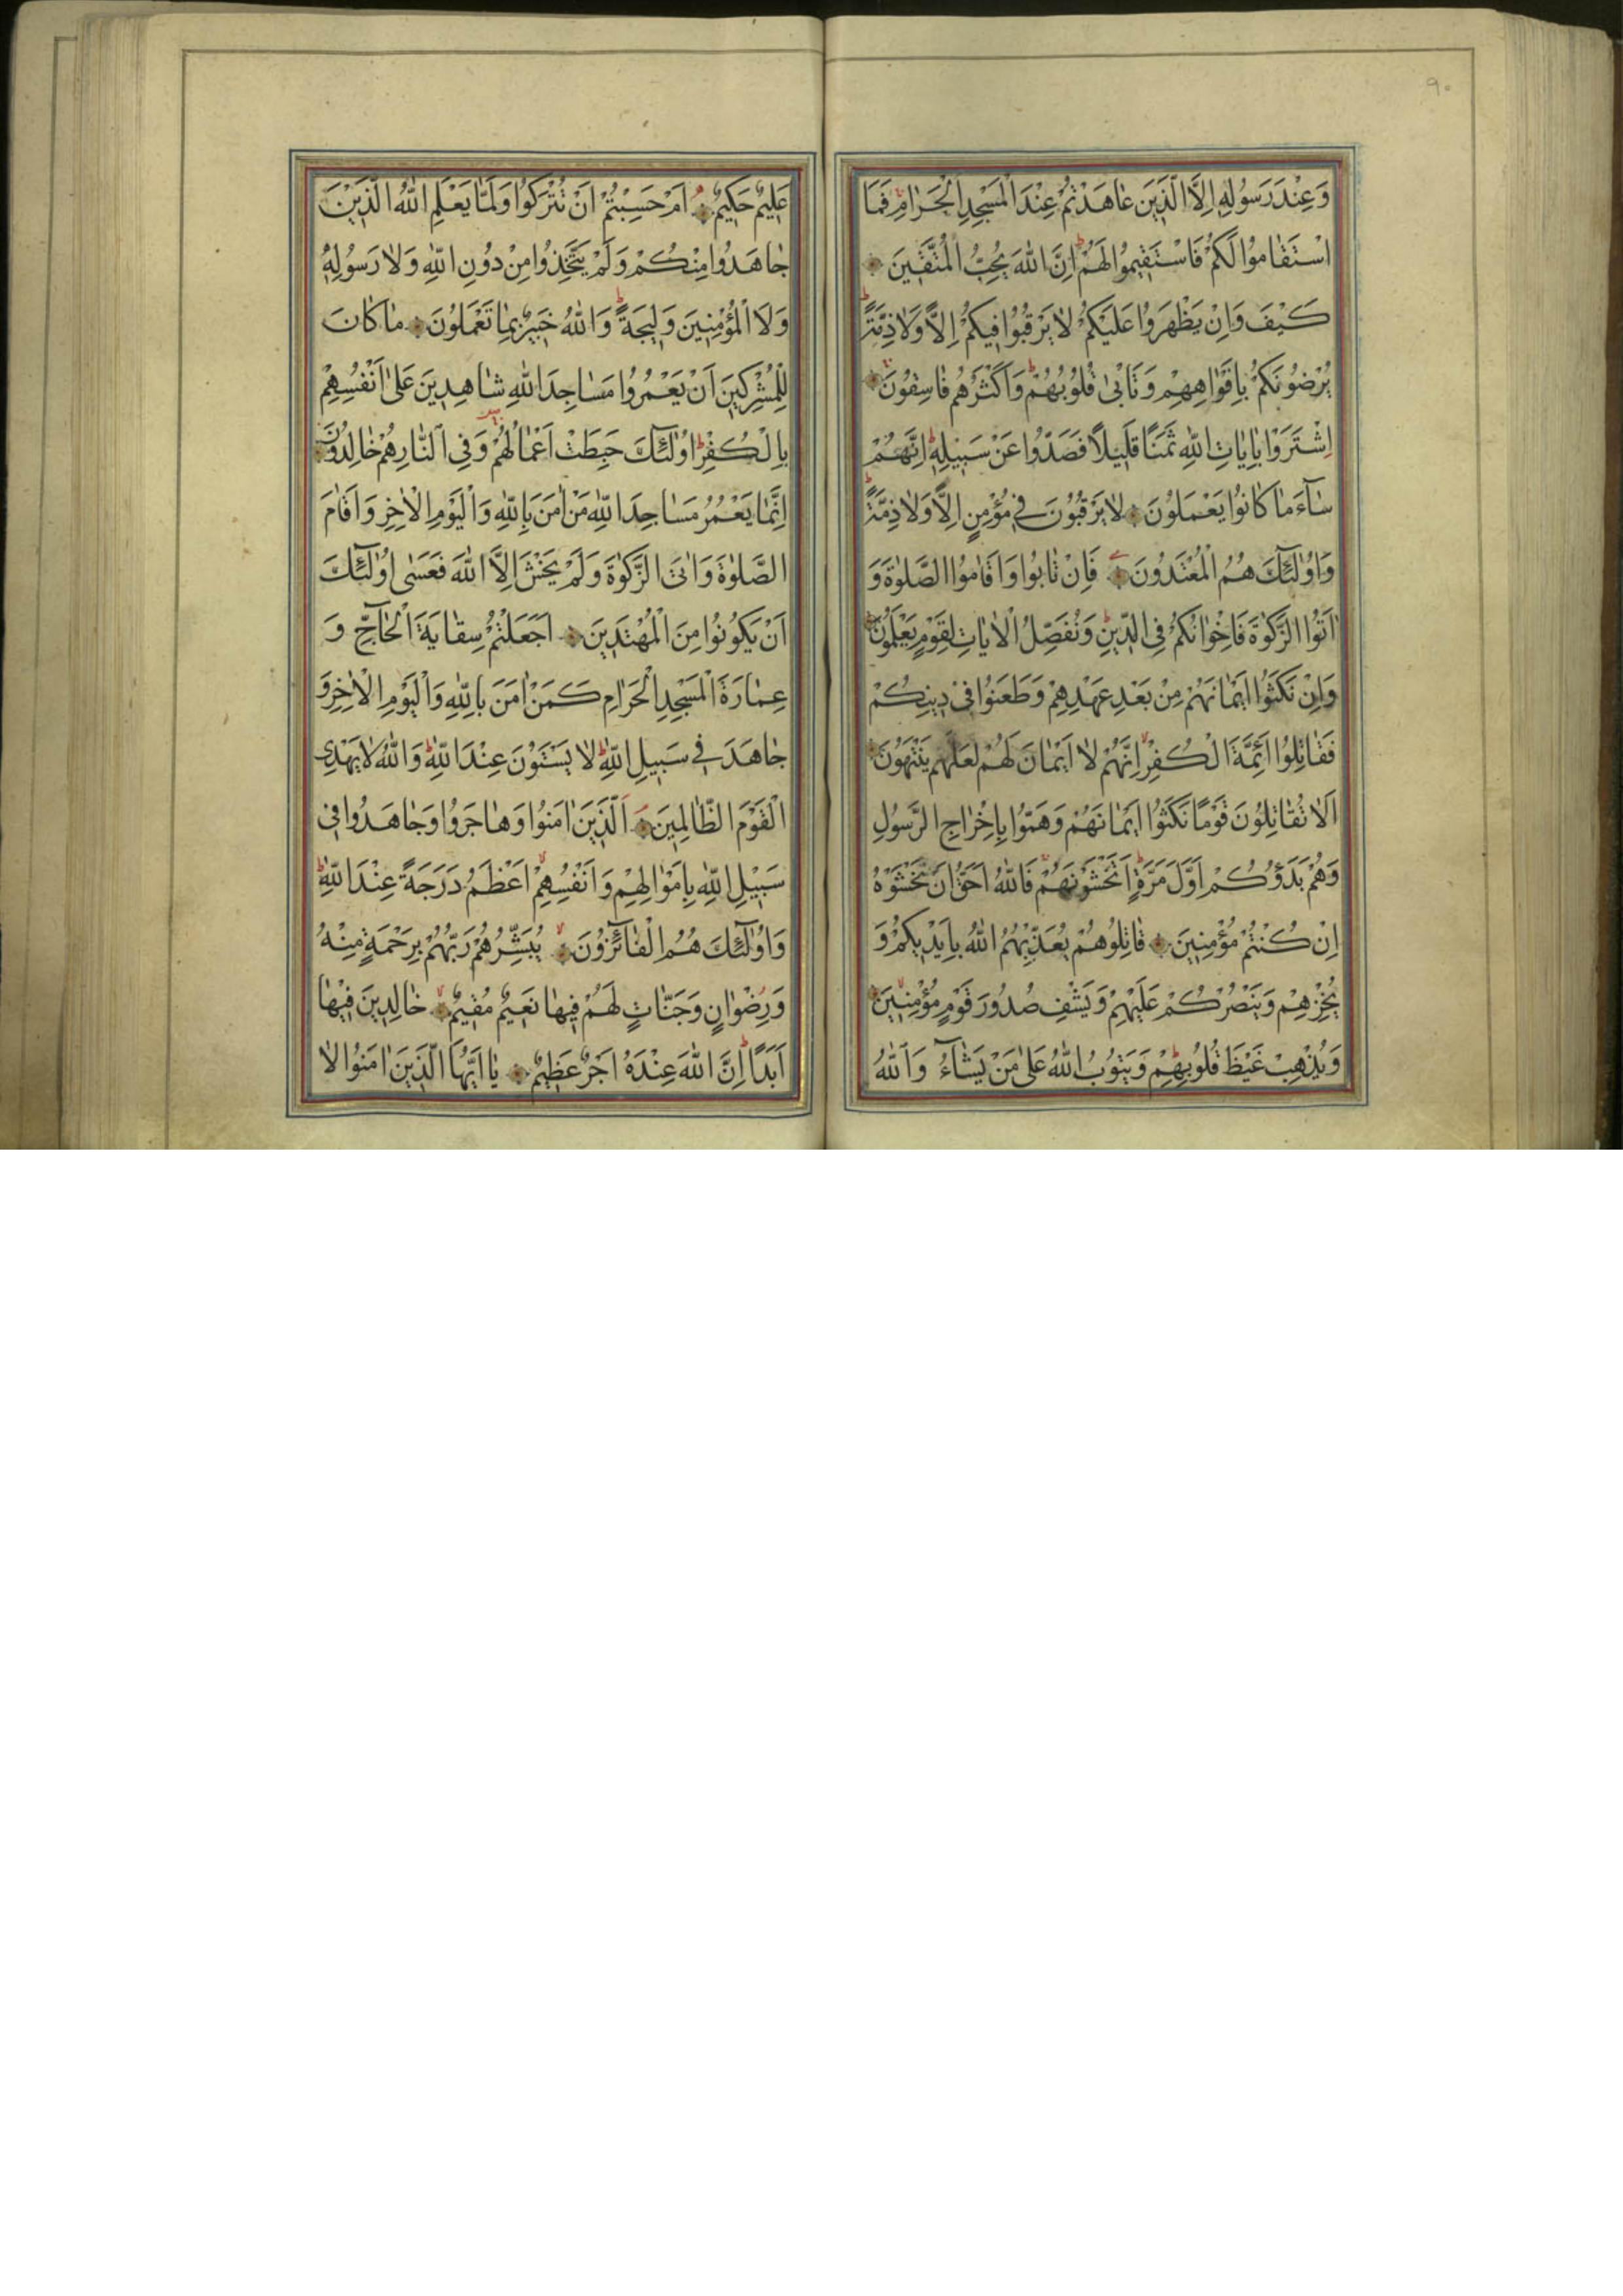 ٩٠
وَعِنْدَ رَسُولِهِ اِلَّا الَّذِينَ عَاهَدْتُمْ عِنْدَ الْمَسْجِدِ الْحَرَامِ فَمَا
اسْتَقَامُوا لَكُمْ فَاسْتَقِيمُوا لَهُمْ اِنَّ اللّٰهَ يُحِبُّ الْمُتَّقِينَ
كَيْفَ وَاِنْ يَظْهَرُوا عَلَيْكُمْ لَا يَرْقُبُوا فِيكُمْ اِلًّا وَلَا ذِمَّةً
يُرْضُونَكُمْ بِاَفْوَاهِهِمْ وَتَاْبٰى قُلُوبُهُمْ وَاَكْثَرُهُمْ فَاسِقُونَ
اِشْتَرَوْا بِاٰيَاتِ اللّٰهِ ثَمَنًا قَلِيلًا فَصَدُّوا عَنْ سَبِيلِهِ اِنَّهُمْ
سَآءَ مَا كَانُوا يَعْمَلُونَ لَا يَرْقُبُونَ فِي مُؤْمِنٍ اِلًّا وَلَا ذِمَّةً
وَاُولٰٓئِكَ هُمُ الْمُعْتَدُونَ فَاِنْ تَابُوا وَاَقَامُوا الصَّلٰوةَ وَ
اٰتَوُا الزَّكٰوةَ فَاِخْوَانُكُمْ فِي الدِّينِ وَنُفَصِّلُ الْاٰيَاتِ لِقَوْمٍ يَعْلَمُونَ
وَاِنْ نَكَثُوا اَيْمَانَهُمْ مِنْ بَعْدِ عَهْدِهِمْ وَطَعَنُوا فِي دِينِكُمْ
فَقَاتِلُوا اَئِمَّةَ الْكُفْرِ اِنَّهُمْ لَا اَيْمَانَ لَهُمْ لَعَلَّهُمْ يَنْتَهُونَ
اَلَا تُقَاتِلُونَ قَوْمًا نَكَثُوا اَيْمَانَهُمْ وَهَمُّوا بِاِخْرَاجِ الرَّسُولِ
وَهُمْ بَدَؤُكُمْ اَوَّلَ مَرَّةٍ اَتَخْشَوْنَهُمْ فَاللّٰهُ اَحَقُّ اَنْ تَخْشَوْهُ
اِنْ كُنْتُمْ مُؤْمِنِينَ قَاتِلُوهُمْ يُعَذِّبْهُمُ اللّٰهُ بِاَيْدِيكُمْ وَ
يُخْزِهِمْ وَيَنْصُرْكُمْ عَلَيْهِمْ وَيَشْفِ صُدُورَ قَوْمٍ مُؤْمِنِينَ
وَيُذْهِبْ غَيْظَ قُلُوبِهِمْ وَيَتُوبُ اللّٰهُ عَلٰى مَنْ يَشَآءُ وَاللّٰهُ
عَلِيمٌ حَكِيمٌ اَمْ حَسِبْتُمْ اَنْ تُتْرَكُوا وَلَمَّا يَعْلَمِ اللّٰهُ الَّذِينَ
جَاهَدُوا مِنْكُمْ وَلَمْ يَتَّخِذُوا مِنْ دُونِ اللّٰهِ وَلَا رَسُولِهِ
وَلَا الْمُؤْمِنِينَ وَلِيجَةً وَاللّٰهُ خَبِيرٌ بِمَا تَعْمَلُونَ مَا كَانَ
لِلْمُشْرِكِينَ اَنْ يَعْمُرُوا مَسَاجِدَ اللّٰهِ شَاهِدِينَ عَلٰى اَنْفُسِهِمْ
بِالْكُفْرِ اُولٰٓئِكَ حَبِطَتْ اَعْمَالُهُمْ وَفِي النَّارِ هُمْ خَالِدُونَ
اِنَّمَا يَعْمُرُ مَسَاجِدَ اللّٰهِ مَنْ اٰمَنَ بِاللّٰهِ وَالْيَوْمِ الْاٰخِرِ وَاَقَامَ
الصَّلٰوةَ وَاٰتَى الزَّكٰوةَ وَلَمْ يَخْشَ اِلَّا اللّٰهَ فَعَسٰى اُولٰٓئِكَ
اَنْ يَكُونُوا مِنَ الْمُهْتَدِينَ اَجَعَلْتُمْ سِقَايَةَ الْحَآجِّ وَ
عِمَارَةَ الْمَسْجِدِ الْحَرَامِ كَمَنْ اٰمَنَ بِاللّٰهِ وَالْيَوْمِ الْاٰخِرِ وَ
جَاهَدَ فِي سَبِيلِ اللّٰهِ لَا يَسْتَوُنَ عِنْدَ اللّٰهِ وَاللّٰهُ لَا يَهْدِي
الْقَوْمَ الظَّالِمِينَ اَلَّذِينَ اٰمَنُوا وَهَاجَرُوا وَجَاهَدُوا فِي
سَبِيلِ اللّٰهِ بِاَمْوَالِهِمْ وَاَنْفُسِهِمْ اَعْظَمُ دَرَجَةً عِنْدَ اللّٰهِ
وَاُولٰٓئِكَ هُمُ الْفَآئِزُونَ يُبَشِّرُهُمْ رَبُّهُمْ بِرَحْمَةٍ مِنْهُ
وَرِضْوَانٍ وَجَنَّاتٍ لَهُمْ فِيهَا نَعِيمٌ مُقِيمٌ خَالِدِينَ فِيهَا
اَبَدًا اِنَّ اللّٰهَ عِنْدَهُ اَجْرٌ عَظِيمٌ يَا اَيُّهَا الَّذِينَ اٰمَنُوا لَا